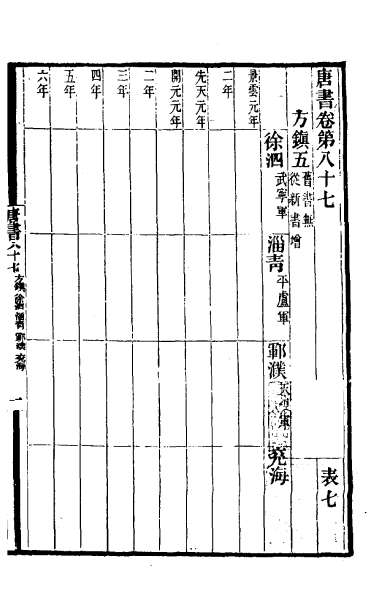 唐書卷第八十七 表七
方鎮五 舊書無從新書增
徐泗 武寧軍 淄青 平盧軍 鄆濮 兗海
景雲元年
二年
先天元年
開元元年
二年
三年
四年
五年
六年
唐書八十七 方鎮 徐泗 淄青 鄆濮 兗海 一